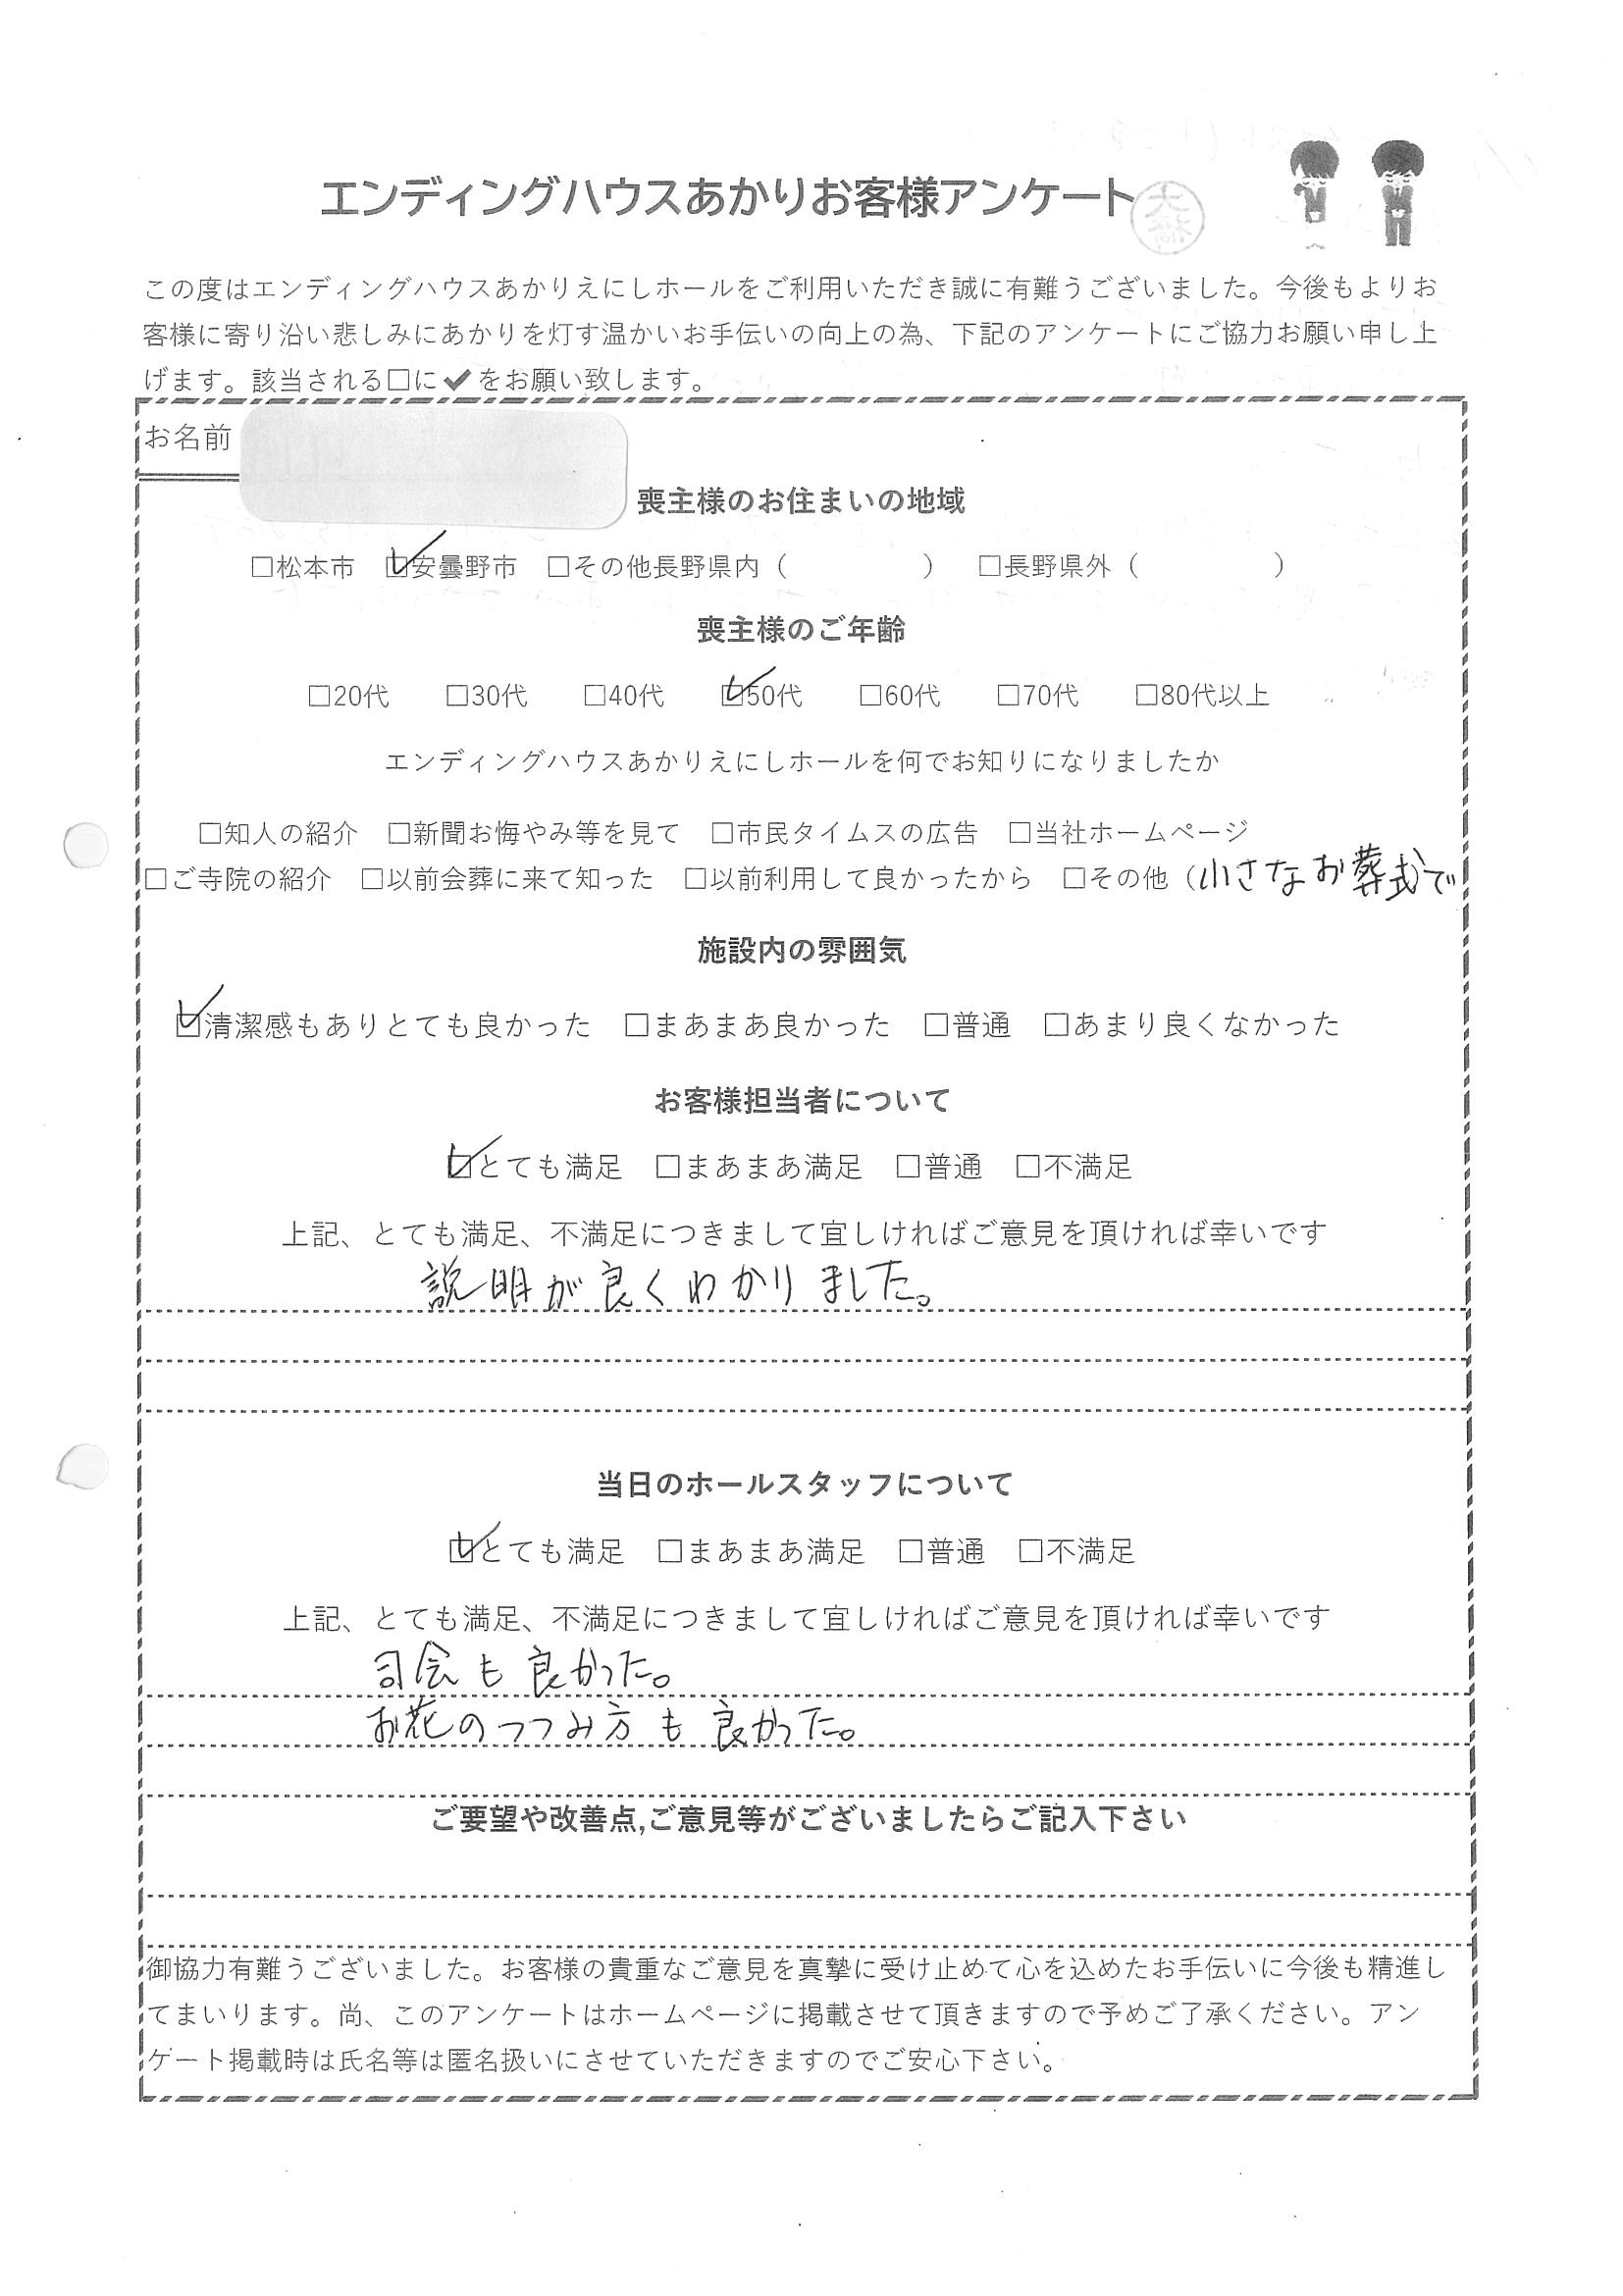 エンディングハウスあかりお客様アンケート
この度はエンディングハウスあかりえにしホールをご利用いただき誠に有難うございました。今後もよりお
客様に寄り沿い悲しみにあかりを灯す温かいお手伝いの向上の為、下記のアンケートにご協力お願い申し上
げます。該当される□に✔をお願い致します。
お名前
喪主様のお住まいの地域
□松本市 ☑安曇野市 □その他長野県内（ ） □長野県外（ ）
喪主様のご年齢
□20代 □30代 □40代 ☑50代 □60代 □70代 □80代以上
エンディングハウスあかりえにしホールを何でお知りになりましたか
□知人の紹介 □新聞お悔やみ等を見て □市民タイムスの広告 □当社ホームページ
□ご寺院の紹介 □以前会葬に来て知った □以前利用して良かったから □その他（小さなお葬式で
施設内の雰囲気
☑清潔感もありとても良かった □まあまあ良かった □普通 □あまり良くなかった
お客様担当者について
☑とても満足 □まあまあ満足 □普通 □不満足
上記、とても満足、不満足につきまして宜しければご意見を頂ければ幸いです
説明が良くわかりました。
当日のホールスタッフについて
☑とても満足 □まあまあ満足 □普通 □不満足
上記、とても満足、不満足につきまして宜しければご意見を頂ければ幸いです
司会も良かった。
お花のつつみ方も良かった。
ご要望や改善点,ご意見等がございましたらご記入下さい
御協力有難うございました。お客様の貴重なご意見を真摯に受け止めて心を込めたお手伝いに今後も精進し
てまいります。尚、このアンケートはホームページに掲載させて頂きますので予めご了承ください。アン
ケート掲載時は氏名等は匿名扱いにさせていただきますのでご安心下さい。